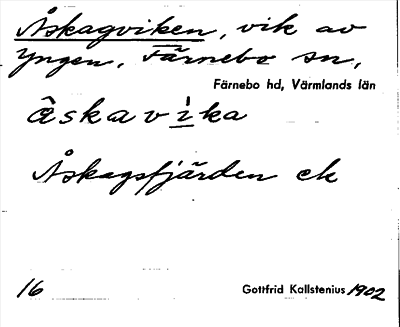 Åskagviken, vik av
Yngen, Färnebo sn,
Färnebo hd, Värmlands län
åskavìka
Åskagsfjärden ek
16
Gottfrid Kallstenius 1902